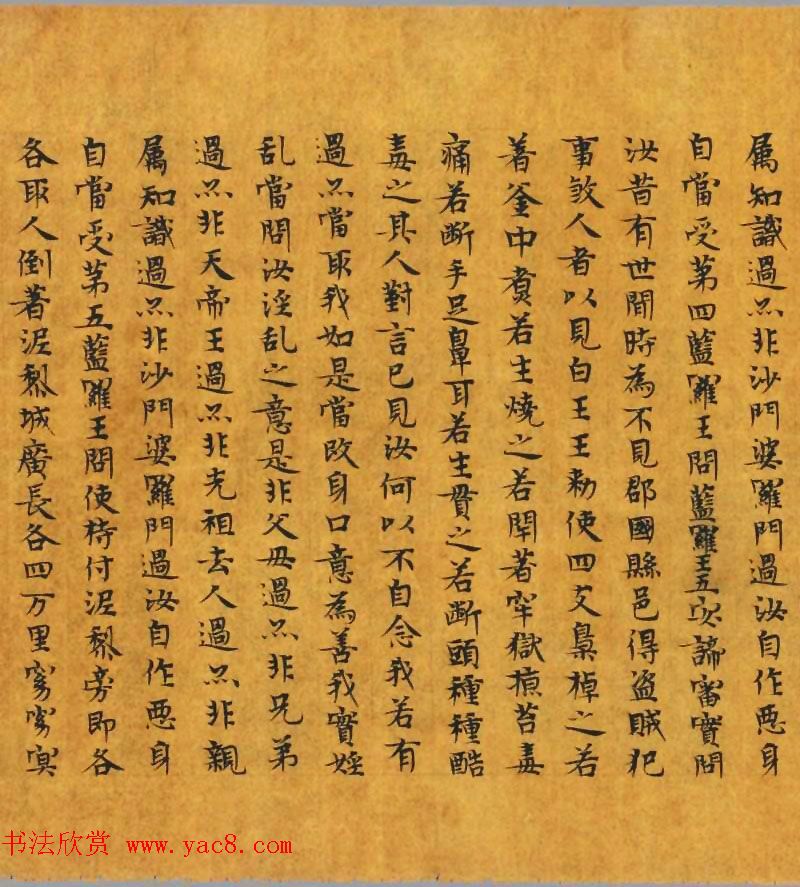 属知識過亦非沙門婆羅門過汝自作惡身
自當受第四藍羅王問藍羅王五実諦審實問
汝昔有世間時為不見郡國縣邑得盜賊犯
事煞人者以見白王王勑使四支梟棹之若
著釜中煑若生燒之若閇著牢獄掠苔毒
痛若斷手足鼻耳若生貫之若斷頭種種酷
毒之其人對言已見汝何以不自念我若有
過亦當取我如是當改身口意為善我實婬
乱當問汝淫乱之意是非父母過亦非兄弟
過亦非天帝王過亦非先祖去人過亦非親
属知識過亦非沙門婆羅門過汝自作惡身
自當受第五藍羅王問使持付泥黎旁即各
各取人倒著泥黎城廣長各四万里窈窈冥
书法欣赏 www.yac8.com